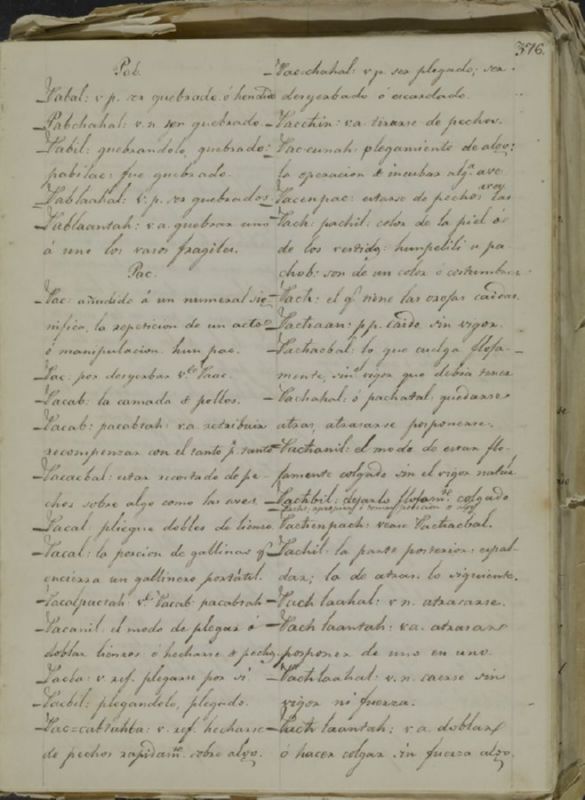 376.
Pab.
Pabal: v. p. ser quebrado ó hendido
Pabchahal: v. n. ser quebrado.
Pabil: quebrandolo, quebrado:
pabilac: fue quebrado.
Pablaahal: v. p. ser quebrados
Pablaantah: v. a. quebrar uno
á uno los vasos fragiles.
Pac.
Pac: añadido á un numeral sig-
nifica la repeticion de un acto
ó manipulacion. hun pac.
Pac. por desyerbar vse Paac.
Pacab: la camada de pollos.
Pacab: pacabtah: v. a. retribuir
recompensar con el tanto pr. tanto
Pacacbal: estar recostado de pe-
chos sobre algo como las aves.
Pacal: pliegue dobles de lienso.
Pacal: la porcion de gallinas q.
encierra un gallinero portátil.
Pacalpactah: vse Pacab: pacabtah
Pacanil: el modo de plegar ó
doblar liensos: ó hecharse de pechos.
v. ref. plegarse por si
Pacbil: plegandolo, plegado.
Pac=cabtuhba: v. ref. hecharse
de pechos rapidamte. sobre algo.
Pac-chahal: v. p. ser plegado; ser
desyerbado ó escardado.
Pacchin: v. a. tirarse de pechos.
Pac-cunah: plegamiento de algo:
la operacion de incubar algª ave
Pacenpac: estarse de pechos las
aves
Pach: pachil: color de la piel ó
de los vestidos: humpelili u pa
chob: son de un color ó costumbre.
Pach: el q. tiene las orejas caidas.
Pachaan: p. p. caido sin vigor.
Pachacbal: lo que cuelga floja-
mente, sin el vigor que debia tener
Pachahal: ó pachatal: quedarse
atras, atrasarse posponerse.
Pachanil: el modo de estar flo-
jamente colgado sin el vigor natu
Pachbil: dejarlo flojamte. colgado
Pachenpach: vease Pachacbal.
Pachil: la parte posterior: espal-
dar; la de atras: lo siguiente.
Pach laahal: v. n. atrasarse.
Pach laantah: v. a. atrasar
posponer de uno en uno.
Pachlaahal: v. n. caerse sin
vigor ni fuerza.
Pach laantah: v. a. doblar
ó hacer colgar sin fuerza algo.